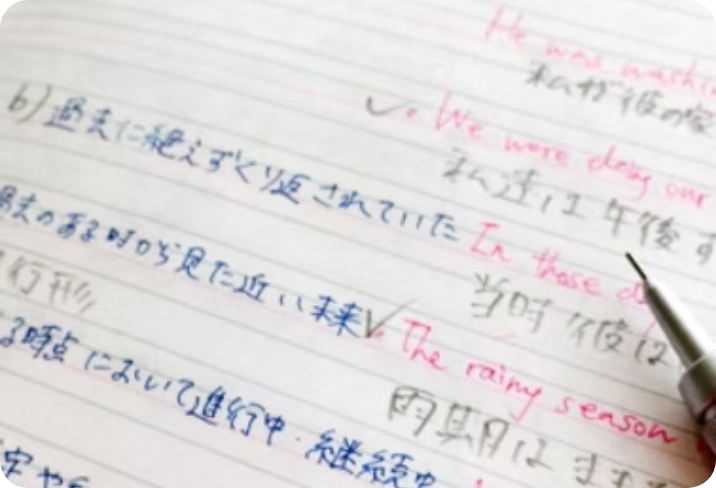 He was washin
私が彼の家
b) 過去に絶えずくり返されていた
We were doing our
私達は午後す
過去のある時から見た近い未来
In those d
当時彼は
行形
The rainy season
る時点において進行中・継続中
雨期は